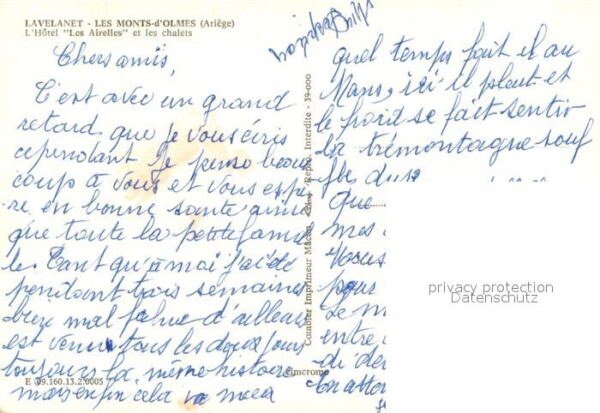 LAVELANET - LES MONTS-d'OLMES (Ariège)
L'Hôtel "Les Airelles" et les chalets
Chers amis,
C'est avec un grand
retard que je vous écris
cependant je pense beau
coup à vous et vous espè
re en bonne santé ainsi
que toute la petite famil
le. Tant qu'à moi j'ai été
pendant trois semaines
bien mal
d'ailleurs
est venu tous les deux jours
toujours la même histoire
mais enfin cela va mieu
E 09.160.13.2.0005
Cimcrome
Combier Imprimeur Mâcon
Repro. Interdite - 39-000
quel temps fait il au
Mans, ici il pleut et
le froid se fait sentir
la trémontagne souf
fle
Que
mes
Vous
pour
Le m
entre
di de
En atten
privacy protection
Datenschutz